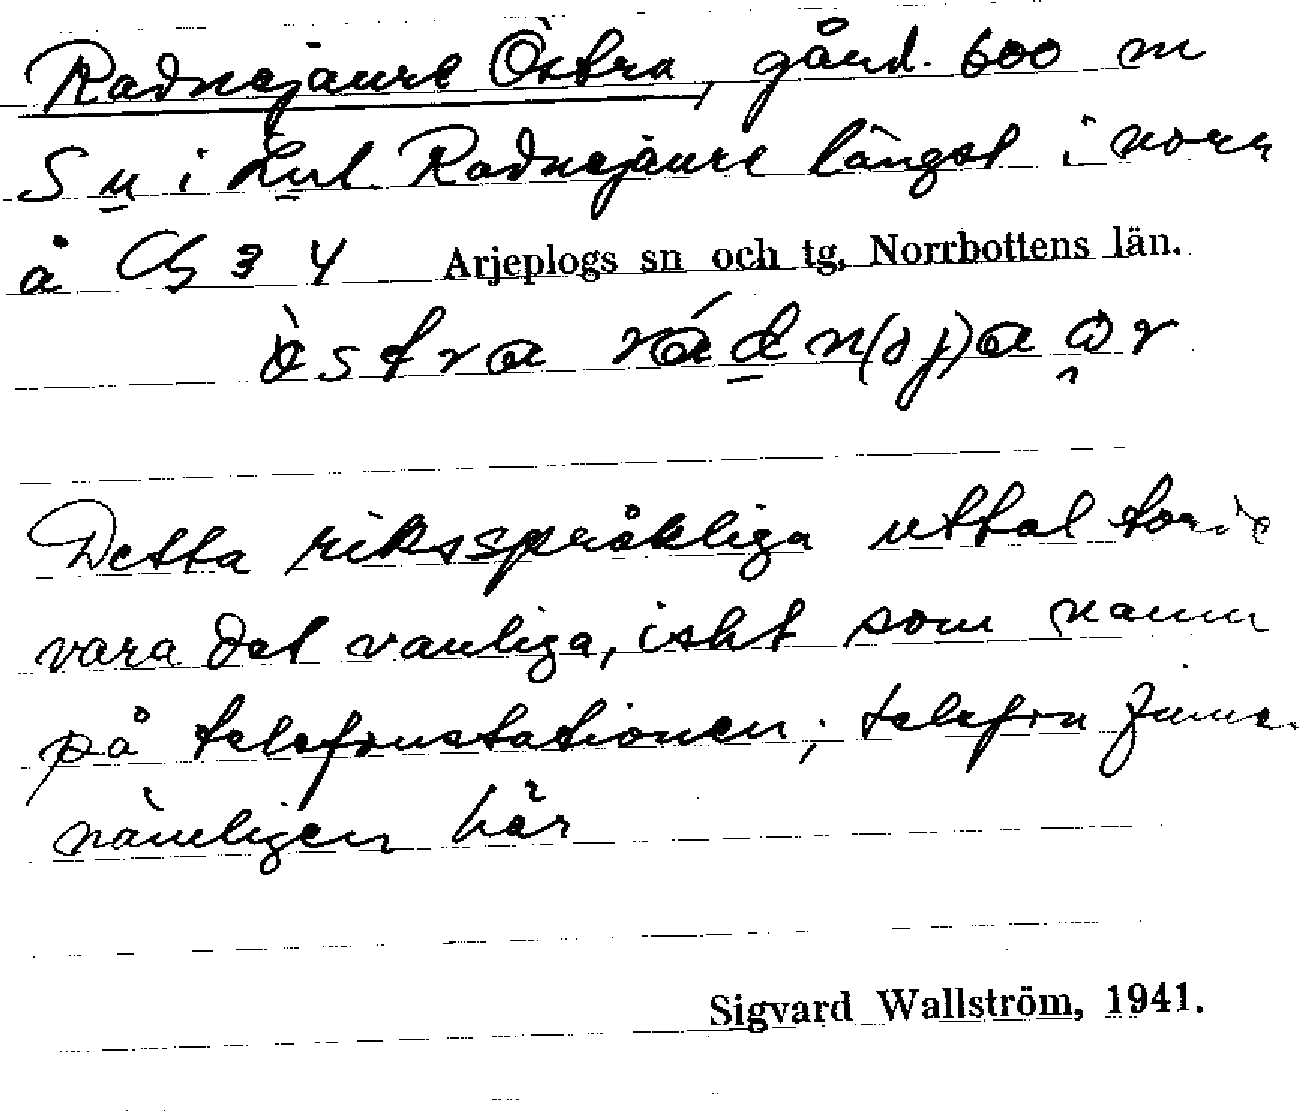 Radnejaure Östra, gård. 600 m
S u i Radnejaure längst i norr
å Cg 3 4 Arjeplogs sn och tg, Norrbottens län.
Detta riksspråkliga uttal torde
vara det vanliga, isht som namn
på telefonstationen; telefon finns
nämligen här
Sigvard Wallström, 1941.